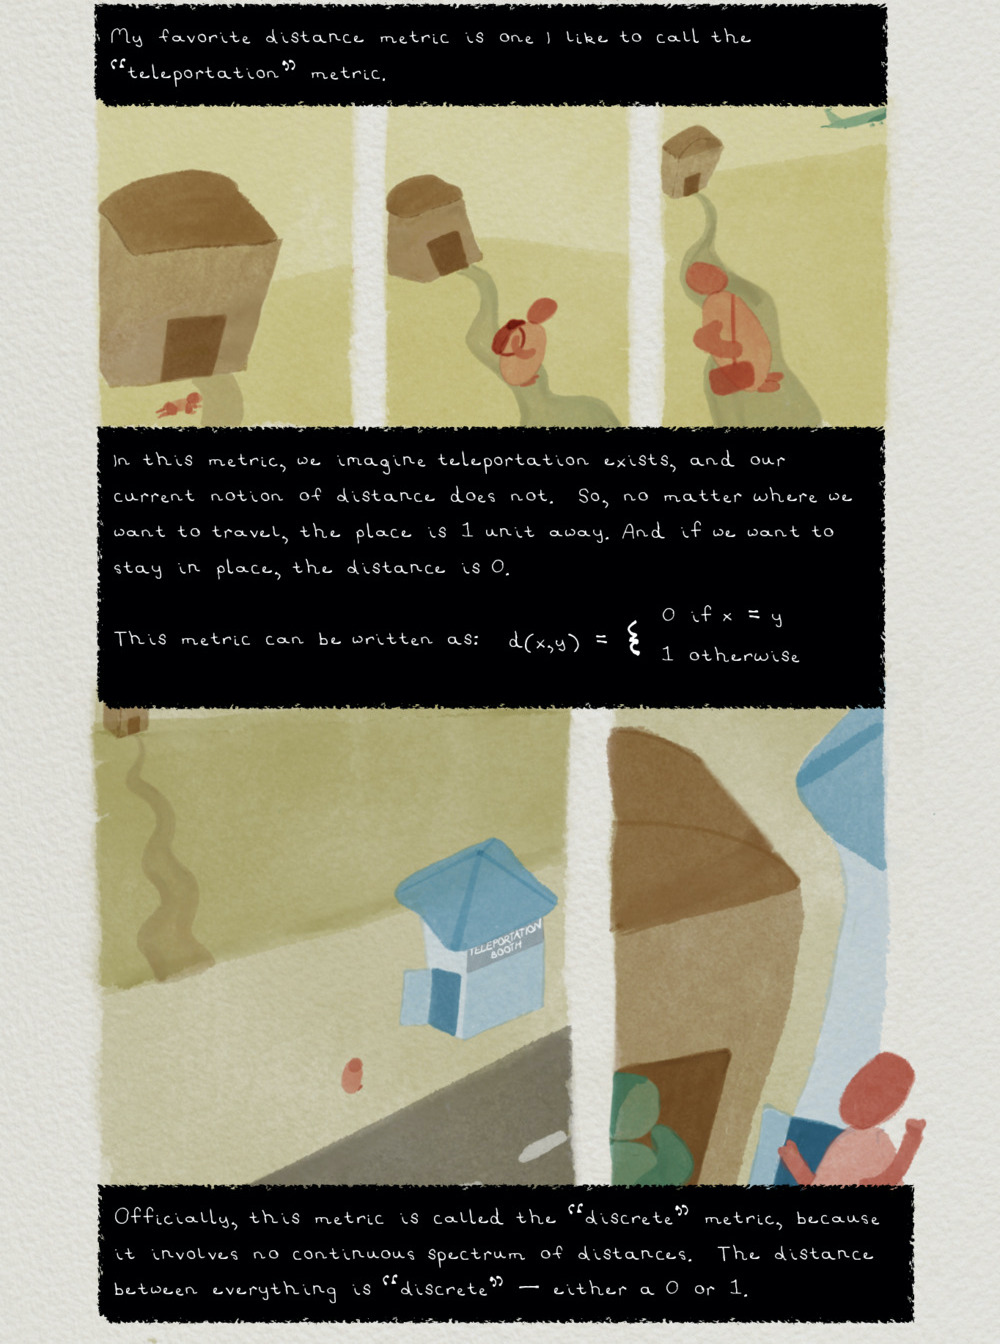 My favorite distance metric is one I like to call the
“teleportation” metric.
In this metric, we imagine teleportation exists, and our
current notion of distance does not. So, no matter where we
want to travel, the place is 1 unit away. And if we want to
stay in place, the distance is 0.
This metric can be written as: d(x,y) = { 0 if x = y
1 otherwise
TELEPORTATION
BOOTH
Officially, this metric is called the “discrete” metric, because
it involves no continuous spectrum of distances. The distance
between everything is “discrete” — either a 0 or 1.